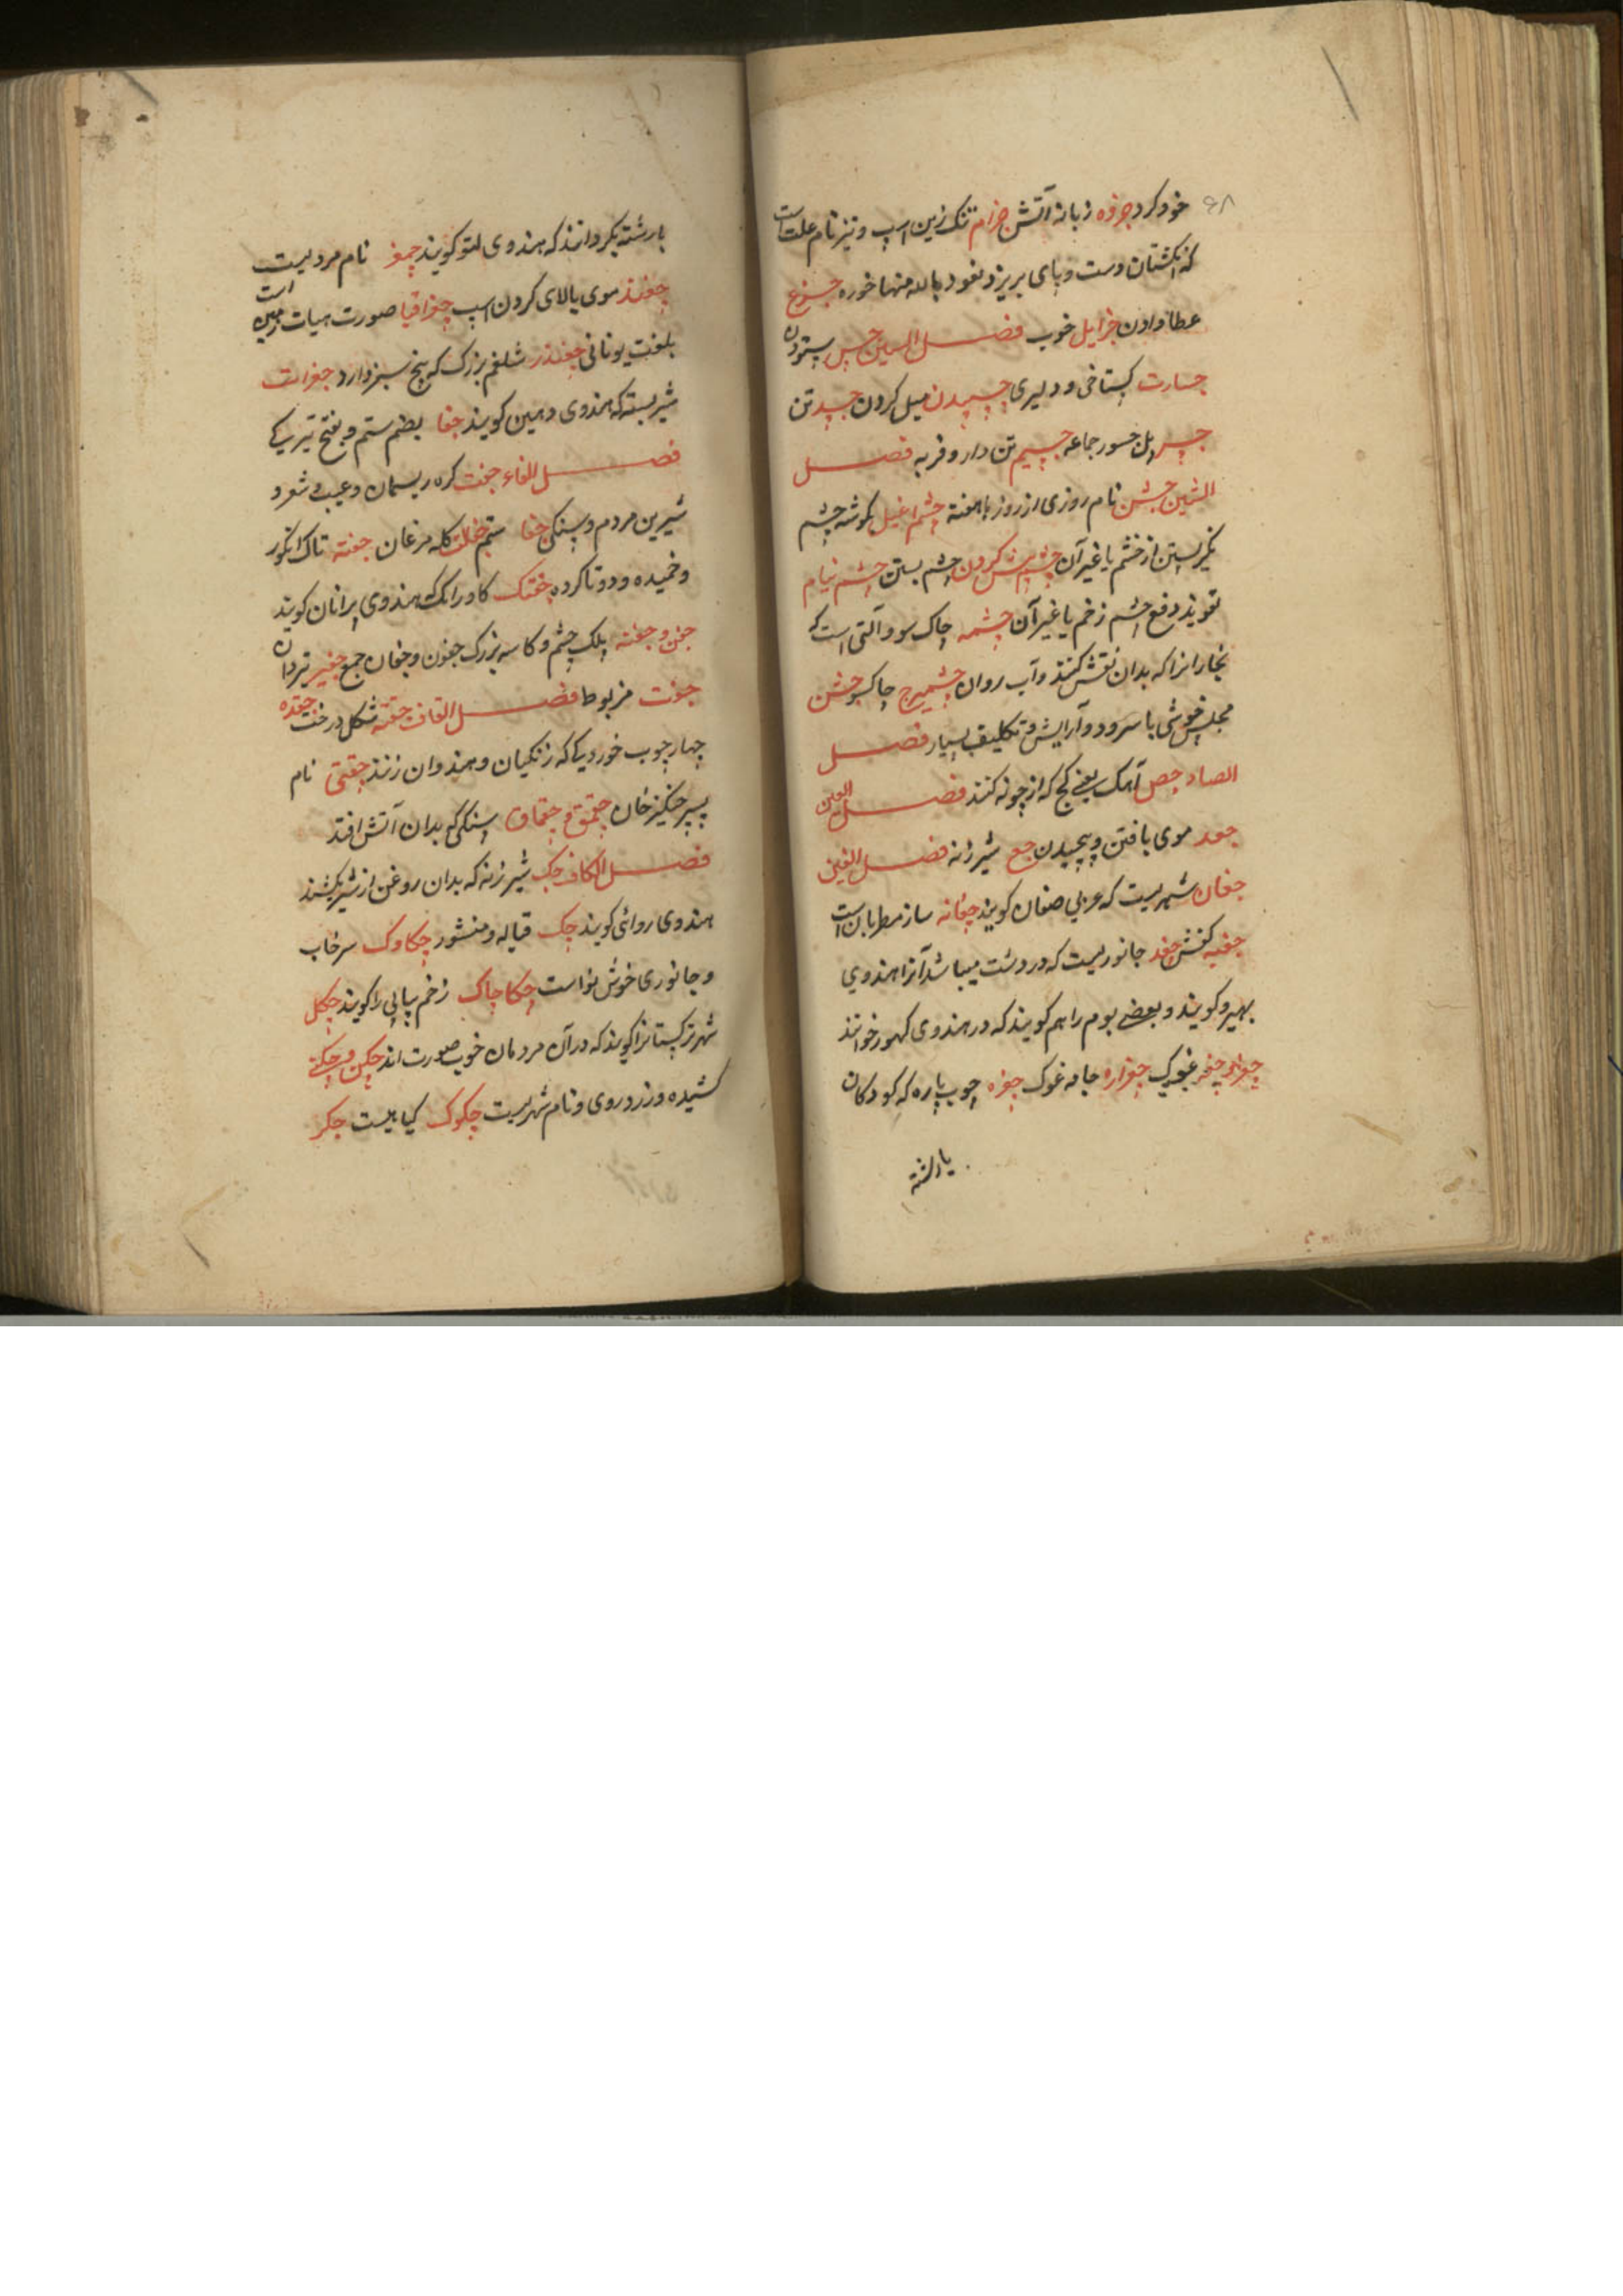 ۶۸
خود کرد جزوه زبانه آتش جزام تنک زین اسپ و نیز نام علت است
که انکشتان دست و پای بریزد نعوذ بالله منها خوره جزع
عطا دادن جزایل خوب فصل السین جس پسودن
جسارت کستاخی و دلیری چسپیدن میل کردن جسد تن
جسر پل جسور جماعه جسیم تن دار و فربه فصل
الشین جشن نام روزی از روزها هفته چشم اغیل بکوشه چشم
نکریستن از خشم یا غیر آن چشم پیش کردن چشم بستن چشم نیام
تعویذ دفع چشم زخم یا غیر آن چشمه چاک سو و آلتی است که
نجارانرا که بدان نقش کنند و آب روان چشمیرج چاکسو جشن
مجلس خوشی با سرود و آرایش و تکلیف بسیار فصل
الصاد جص آهک یعنی کج که از چونه کنند فصل العین
جعد موی بافتن و پیچیدن جع شیرزنه فصل الغین
چغان شهریست که عربی صغان کویند چغانه ساز مطربان است
جغبه کفش جغد جانوریست که در دشت میباشد آنرا هندوی
بهیرو کویند و بعضی بوم را هم کویند که در هندوی کهور خوانند
چغزو چغر غوک چغزاره جامه غوک چغزه چوب پاره که کودکان
یا رشته
با رشته بکردانند که هندوی لتو کویند چمغ نام مردیست
چغند موی بالای کردن اسپ چغراقیا صورت هیات زمین است
بلغت یونانی چغندر شلغم بزرک که بیخ سبز دارد جغرات
شیر بسته که هندوی دهین کویند جفا بضم ستم و بفتح تیر یک
فصل الفاء جفت کره ریسمان و عیب و شعر و
شیرین مردم و سنکی جفا ستم جفلت کله مرغان جفته تاک انکور
و خمیده و دوتا کرده جفتک کاورانک هندوی پرانان کویند
جفن و جفنه پلک چشم و کاسه بزرک جفون و جفان جمع جفیر تیردان
جفت مربوط فصل القاف جقته شکل درخت جقده
چهار چوب خوردیکه که زنکیان و هندوان زنند جقتی نام
پسر چنکیز خان چقمق و چقماق سنکی که بدان آتش افتد
فصل الکاف جک شیرزنه که بدان روغن از شیر بکشند
هندوی روائی کویند چک قباله و منشور چکاوک سرخاب
و جانوری خوش نواست چکاچاک زخم پیاپی را کویند چکل
شهر ترکستانرا کویند که در آن مردمان خوب صورت اند چکن و چکنی
کشیده و زردوزی و نام شهریست چکوک کیاهیست جکر